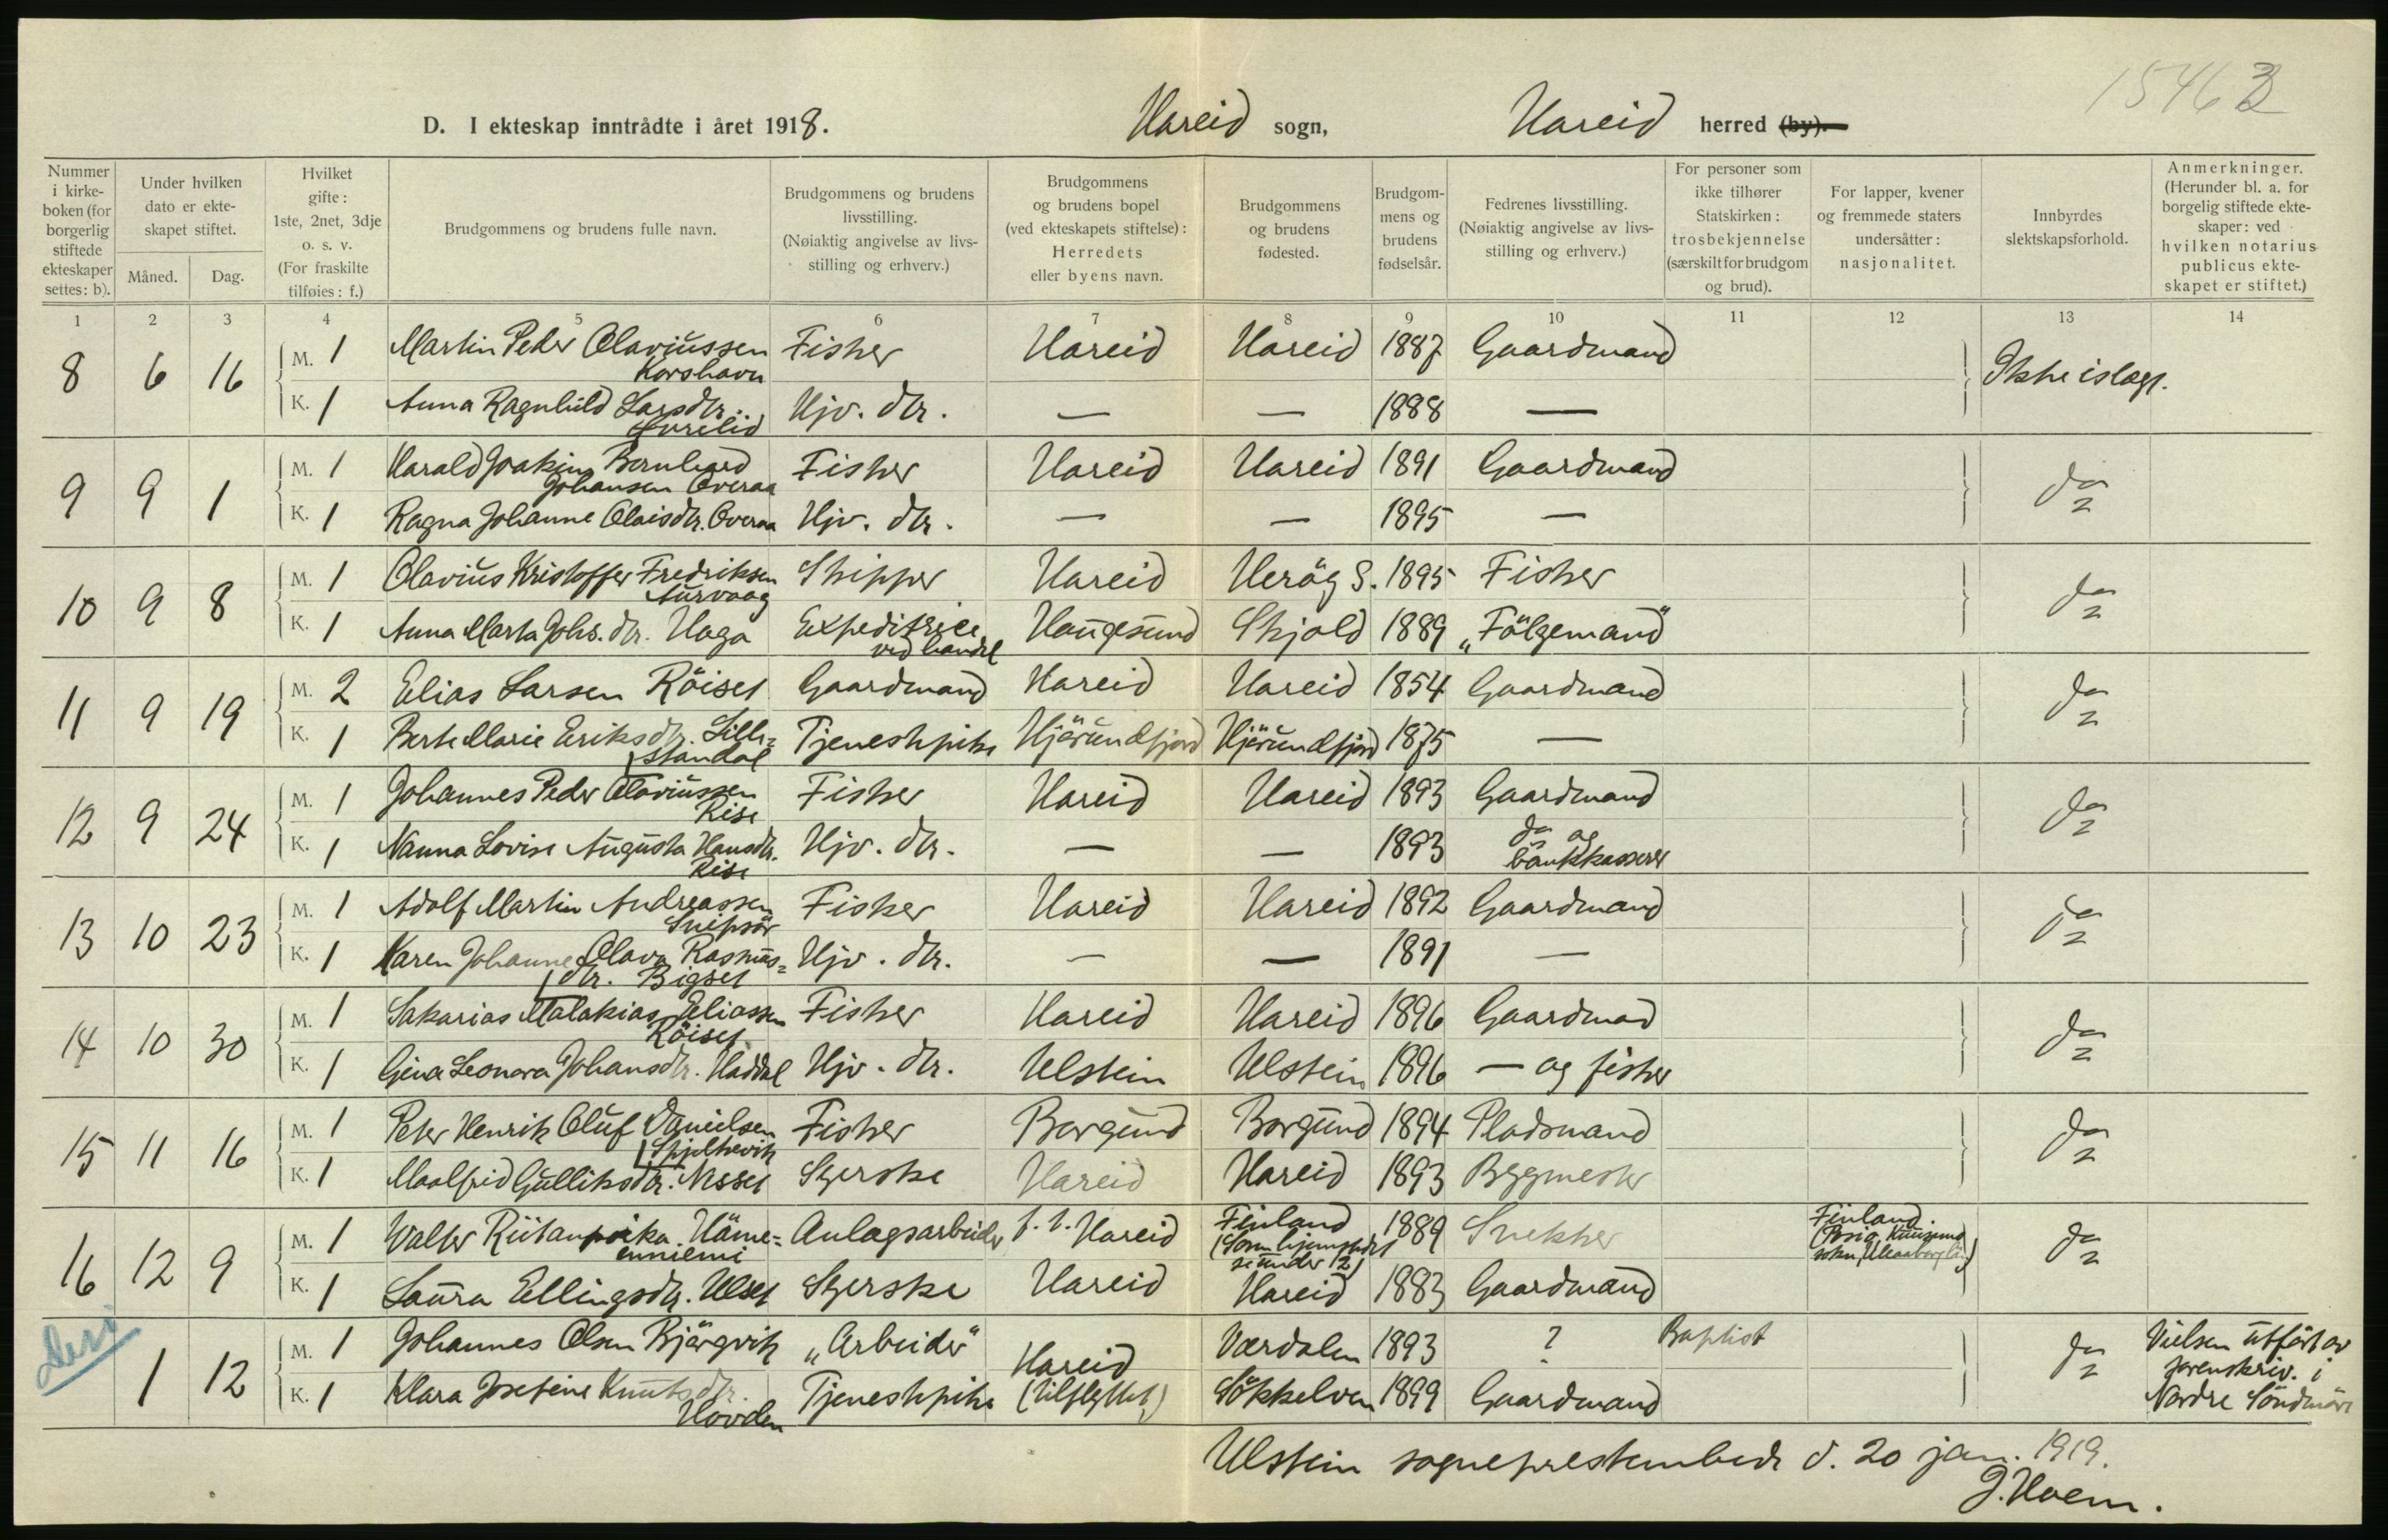 15463
D. I ekteskap inntrådte i året 1918. Hareid sogn, Hareid herred (by).
Nummer i kirkeboken (for borgerlig stiftede ekteskaper settes: b).
Under hvilken dato er ekteskapet stiftet.
Måned. Dag.
Hvilket gifte: 1ste, 2net, 3dje o. s. v. (For fraskilte tilføies: f.)
Brudgommens og brudens fulle navn.
Brudgommens og brudens livsstilling. (Nøiaktig angivelse av livsstilling og erhverv.)
Brudgommens og brudens bopel (ved ekteskapets stiftelse): Herredets eller byens navn.
Brudgommens og brudens fødested.
Brudgommens og brudens fødselsår.
Fedrenes livsstilling. (Nøiaktig angivelse av livsstilling og erhverv.)
For personer som ikke tilhører Statskirken: trosbekjennelse (særskilt for brudgom og brud).
For lapper, kvener og fremmede staters undersåtter: nasjonalitet.
Innbyrdes slektskapsforhold.
Anmerkninger. (Herunder bl. a. for borgelig stiftede ekteskaper: ved hvilken notarius publicus ekteskapet er stiftet.)
1 2 3 4 5 6 7 8 9 10 11 12 13 14
8 6 16 M. 1 Martin Peder Olaviussen Korshavn Fisker Hareid Hareid 1887 Gaardmand Ikke islægt.
K. 1 Anna Ragnhild Larsdtr. Hjv. dtr. — — 1888 —
9 9 1 M. 1 Harald Joakim Bernhard Johansen Overaa Fisker Hareid Hareid 1891 Gaardmand do
K. 1 Ragna Johanne Olaisdtr. Overaa Hjv. dtr. — — 1895 —
10 9 8 M. 1 Olavius Kristoffer Fredriksen Aurvaag Skipper Hareid Heröy S. 1895 Fisker do
K. 1 Anna Marta Johs. dtr. Haga Expeditrice ved handel Haugesund Skjold 1889 „Fölgemand"
11 9 19 M. 2 Elias Larsen Röiset Gaardmand Hareid Hareid 1854 Gaardmand do
K. 1 Berte Marie Eriksdtr. Lille=standal Tjenestepike Hjörundfjord Hjörundfjord 1875 —
12 9 24 M. 1 Johannes Peder Olaviussen Rise Fisker Hareid Hareid 1893 Gaardmand do
K. 1 Nanna Lovise Augusta Hansdtr. Rise Hjv. dtr. — — 1893 do og bankkasserer
13 10 23 M. 1 Adolf Martin Andreassen Snipsör Fisker Hareid Hareid 1892 Gaardmand do
K. 1 Karen Johanne Olava Rasmus=dtr. Bigset Hjv. dtr. — — 1891 —
14 10 30 M. 1 Sakarias Malakias Eliassen Röiset Fisker Hareid Hareid 1896 Gaardmad do
K. 1 Gina Leonora Johansdtr. Haddal Hjv. dtr. Ulstein Ulstein 1896 — og fisker
15 11 16 M. 1 Peter Henrik Oluf Danielsen Spjelkevik Fisker Borgund Borgund 1894 Pladsmand do
K. 1 Maalfrid Gulliksdtr. Nesset Syerske Hareid Hareid 1893 Bygmester
16 12 9 M. 1 Walter Riitanpoika Häme=enniemi Anlagsarbeider f. t. Hareid Finland (Som hjemsted se under 12) 1889 Snekker Finland. (Posio, Kuusamo sokn, Uleaborg län) do
K. 1 Laura Ellingsdtr. Ulset Syerske Hareid Hareid 1883 Gaardmand
1 12 M. 1 Johannes Olsen Bjärgvik „Arbeider" Hareid (tilflyttet) Værdalen 1893 ? Baptist do Vielsen utført av sorenskriv. i Nordre Söndmöre
K. 1 Klara Josefine Knutsdtr. Hovden Tjenestepike Sökkelven 1899 Gaardmand
Ulstein sogneprestembede d. 20 jan. 1919.
J. Hoem.